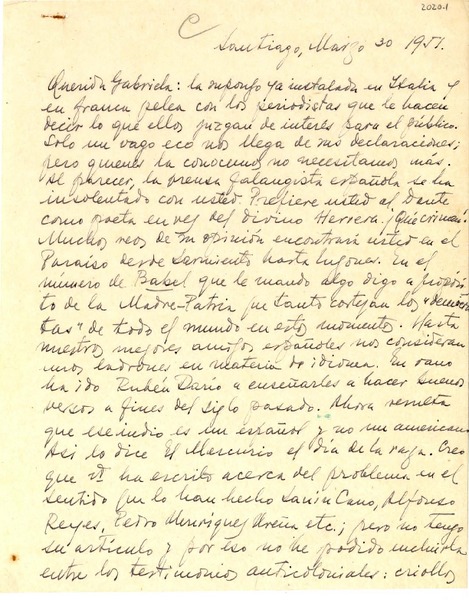 2020.1
C
Santiago, Marzo 30 1951.
Querida Gabriela: la supongo ya instalada en Italia y
en franca pelea con los periodistas que le hacen
decir lo que ellos juzgan de interés para el público.
Solo un vago eco nos llega de sus declaraciones;
pero quienes la conocemos no necesitamos más.
Al parecer, la prensa falangista española se ha
insolentado con usted. Prefiere usted al Dante
como poeta en vez del divino Herrera. ¡Qué crimen!
Muchos reos de su opinión encontrará usted en el
Paraíso desde Sarmiento hasta Lugones. En el
número de Babel que le mando algo digo a propósi-
to de la Madre-Patria que tanto cortejan los "demócra-
tas" de todo el mundo en estos momentos. Hasta
nuestros mejores amigos españoles nos consideran
unos ladrones en materia de idioma. En vano
ha ido Rubén Darío a enseñarles a hacer buenos
versos a fines del siglo pasado. Ahora resulta
que ese indio es un español y no un americano.
Así lo dice El Mercurio el día de la raza. Creo
que Vd. ha escrito acerca del problema en el
sentido que lo han hecho Sanín Cano, Alfonso
Reyes, Pedro Henríquez Ureña etc.; pero no tengo
su artículo y por eso no he podido incluirla
entre los testimonios anticoloniales: criollos